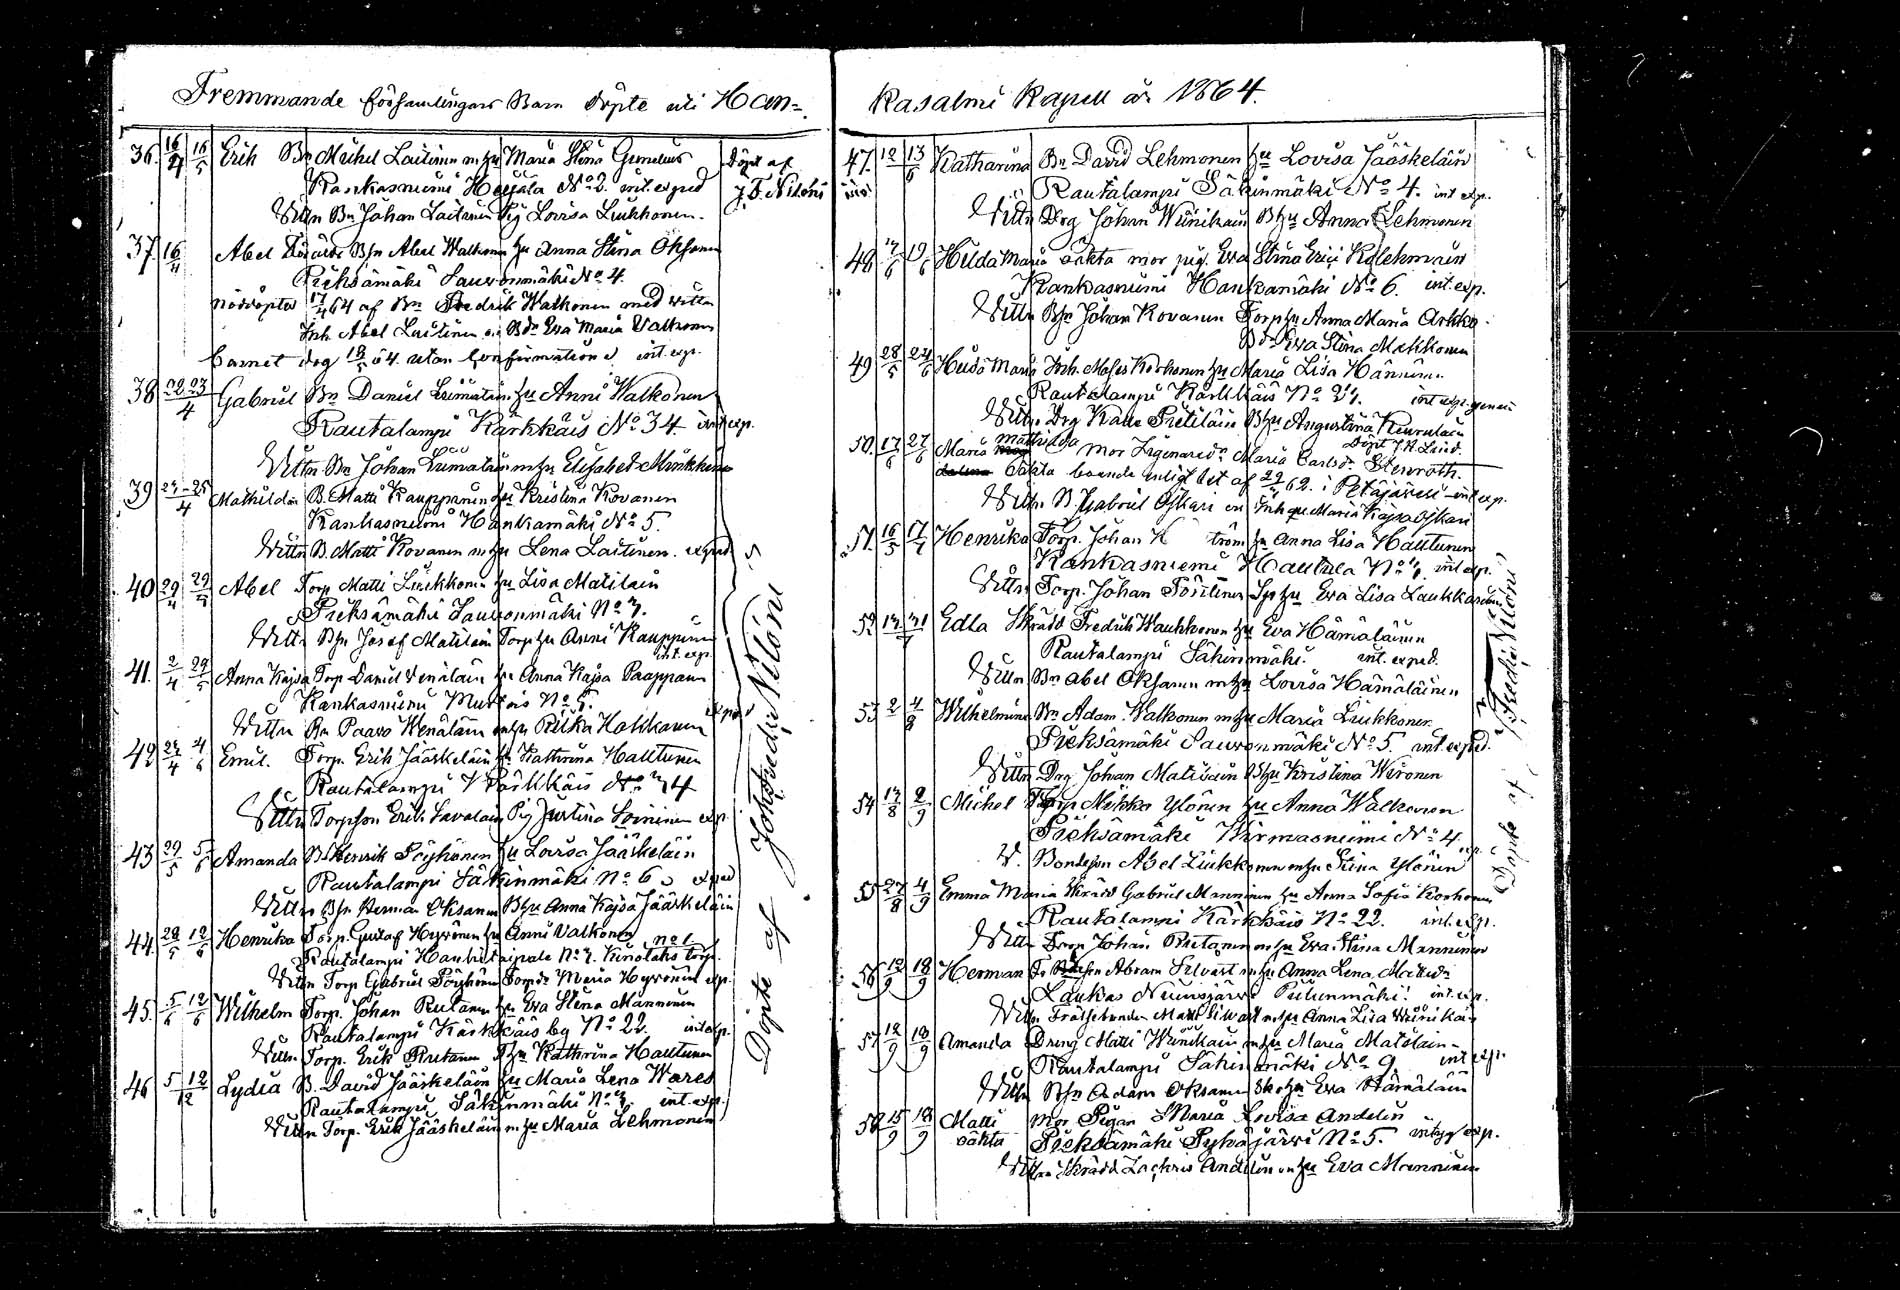 Fremmande församlingars Barn döpte uti Han=
36. 16/4 16/5 Erik Bn Michel Laitinen m hu Maria Stina Gumelius Döpt af
Kankasniemi Heijala No 2. int. exped J. F. Niloni
Vittn Bn Johan Laitinen Pig Lovisa Liukkonen.
37. 16/4 Abel Bsn Abel Walkonen hu Anna Stina Oksanen
Pieksämäki Sauvonmäki No 4.
nöddöptes 17/4 64 af Bn Fredrik Walkonen med vittn
Inh. Abel Laitinen o Bdr Eva Maria Valkonen
barnet dog 18/5 64. utan confirmation int. exp.
38 22 23/4 Gabriel Bn Daniel Leimatain hu Anni Walkonen
Rautalampi Kärkkäis No 34. int exp.
Vittn Bn Johan Liimatain m hu Elisabet Minkkinen
39 24-25/4 Mathilda B. Matti Kauppinen hu Kristina Kovanen
Kankasniemi Hankamäki No 5.
Vittn B. Matti Kovanen m hu Lena Laitinen. exped
40 29/4 29/5 Abel Torp Matti Liukkonen hu Lisa Matilain
Pieksämäki Sauvonmäki No 7.
Vittn Bsn Josef Matilain Torp hu Anni Kauppinen
int. exp.
41. 2/4 29/5 Anna Kajsa Torp Daniel Venäläin hu Anna Kajsa Paappanen
Kankasniemi No 5.
Vittn Bn Paavo Wenäläin m hu Riika Hokkanen exped
42 24/4 4/6 Emil. Torp. Erik Jääskeläin hu Kathrina Hautunen
Rautalampi Kärkkäis No 34
Vittn Torpson Erik Savolain Pig Justina Soininen exp.
43 29/5 5/6 Amanda B Henrik Pöyhönen hu Lovisa Jääskeläin
Rautalampi Säkinmäki No 6 exped
Vittn Bsn Herman Oksanen Bhu Anna Kajsa Jääskeläin
44. 28/5 12/6 Henrika Torp. Gustaf Hyvönen hu Anni Valkonen
Rautalampi Hankataipale No 7. Kinolaks torp. No 1
Vittn Torp Gabriel Pöyhönen Torpdr Maria Hyvönen exp.
45. 5/6 12/6 Wilhelm Torp. Johan Rutanen hu Eva Stina Manninen
Rautalampi Kärkkäis by No 22. int exp.
Vittn Torp. Erik Rutanen hu Kathrina Hautunen
46 5/12 12 Lydia B. David Jääskeläin hu Maria Lena Wares
Rautalampi Säkinmäki No 7. int. exp.
Vittn Torp. Erik Jääskeläin m hu Maria Lehmonen
Döpte af Joh. Fredr. Niloni
Kasalmi Kapell år 1864.
47. 12 13/6 Katharina Bn David Lehmonen hu Lovisa Jääskeläin
Rautalampi Säkinmäki No 4. int exp.
Vittn Drg Johan Wiinikain Bhu Anna Lehmonen
48 17/6 19/6 Hilda Maria oäkta mor pig. Eva Stina Erici Kolehmain
Kankasniemi Hankamäki No 6. int. exp.
Vittn Bsn Johan Kovanen Torp hu Anna Maria Arkko.
Bdr Eva Stina Makkonen
49 28/5 24/6 Maria Inh. Moses Korhonen hu Maria Lisa Hänninen
Rautalampi Kärkkäis No 21. int exp.
Vittn Drg Kalle Pietiläin Bhu Augustina
50. 17/6 27/6 Maria Mathilda mor Maria Carlsdr Stenroth. Döpt J. A. Lind.
oäkta boende enligt bet af 62. i Petäjävesi int exp.
Vittn B. Gabriel Ojkari en Inh qv Maria Kajsa Ojkari
51. 16/5 17/7 Henrika Torp. Johan hu Anna Lisa Hautunen
Kankasniemi Hautala No 1. int exp.
Vittn Torp. Johan hu Eva Lisa Laukkarinen
52 Edla Skrädd Fredrik Waukkonen hu Eva Hämäläinen
Rautalampi Säkinmäki. int. exped.
Vittn Bn Abel Oksanen m hu Lovisa Hämäläinen
53 2 4/8 Wilhelmina Bn Adam Walkonen m hu Maria Liukkonen
Pieksämäki Sauvonmäki No 5. int. exped.
Vittn Drg Johan Matilain Bhu Kristina Wironen
54 17/8 2/9 Michel Torp Mikko Ylönen hu Anna Walkonen
Pieksämäki Wirmasniemi No 4.
V. Bondeson Abel Liukkonen m hu Stina Ylönen
55 27/8 4/9 Emma Maria Skrädd Gabriel Manninen hu Anna Sofia Korhonen
Rautalampi Kärkkäis No 22. int. exp.
Vittn Torp Johan Rutanen m hu Eva Stina Manninen
56 12/9 18/9 Herman Abram Silvast m hu Anna Lena
Laukas Niinisjärvi int. exp.
Vittn Matti Silvast m hu Anna Lisa Wiinikain
57 12/9 18/9 Amanda Dreng Matti Wiinikain m hu Maria Matilain
Rautalampi Säkinmäki No 9. int exp.
Vittn Bsn Adam Oksanen hu Eva Hämäläin
58 15/9 18/9 Matti mor Pigan Maria Lovisa Andelin
oäkta Pieksämäki Pyhäjärvi No 5. intyg exp.
Vittn Skrädd Zachris Andelin m hu Eva Manninen
Döpte af J. Fredr. Niloni